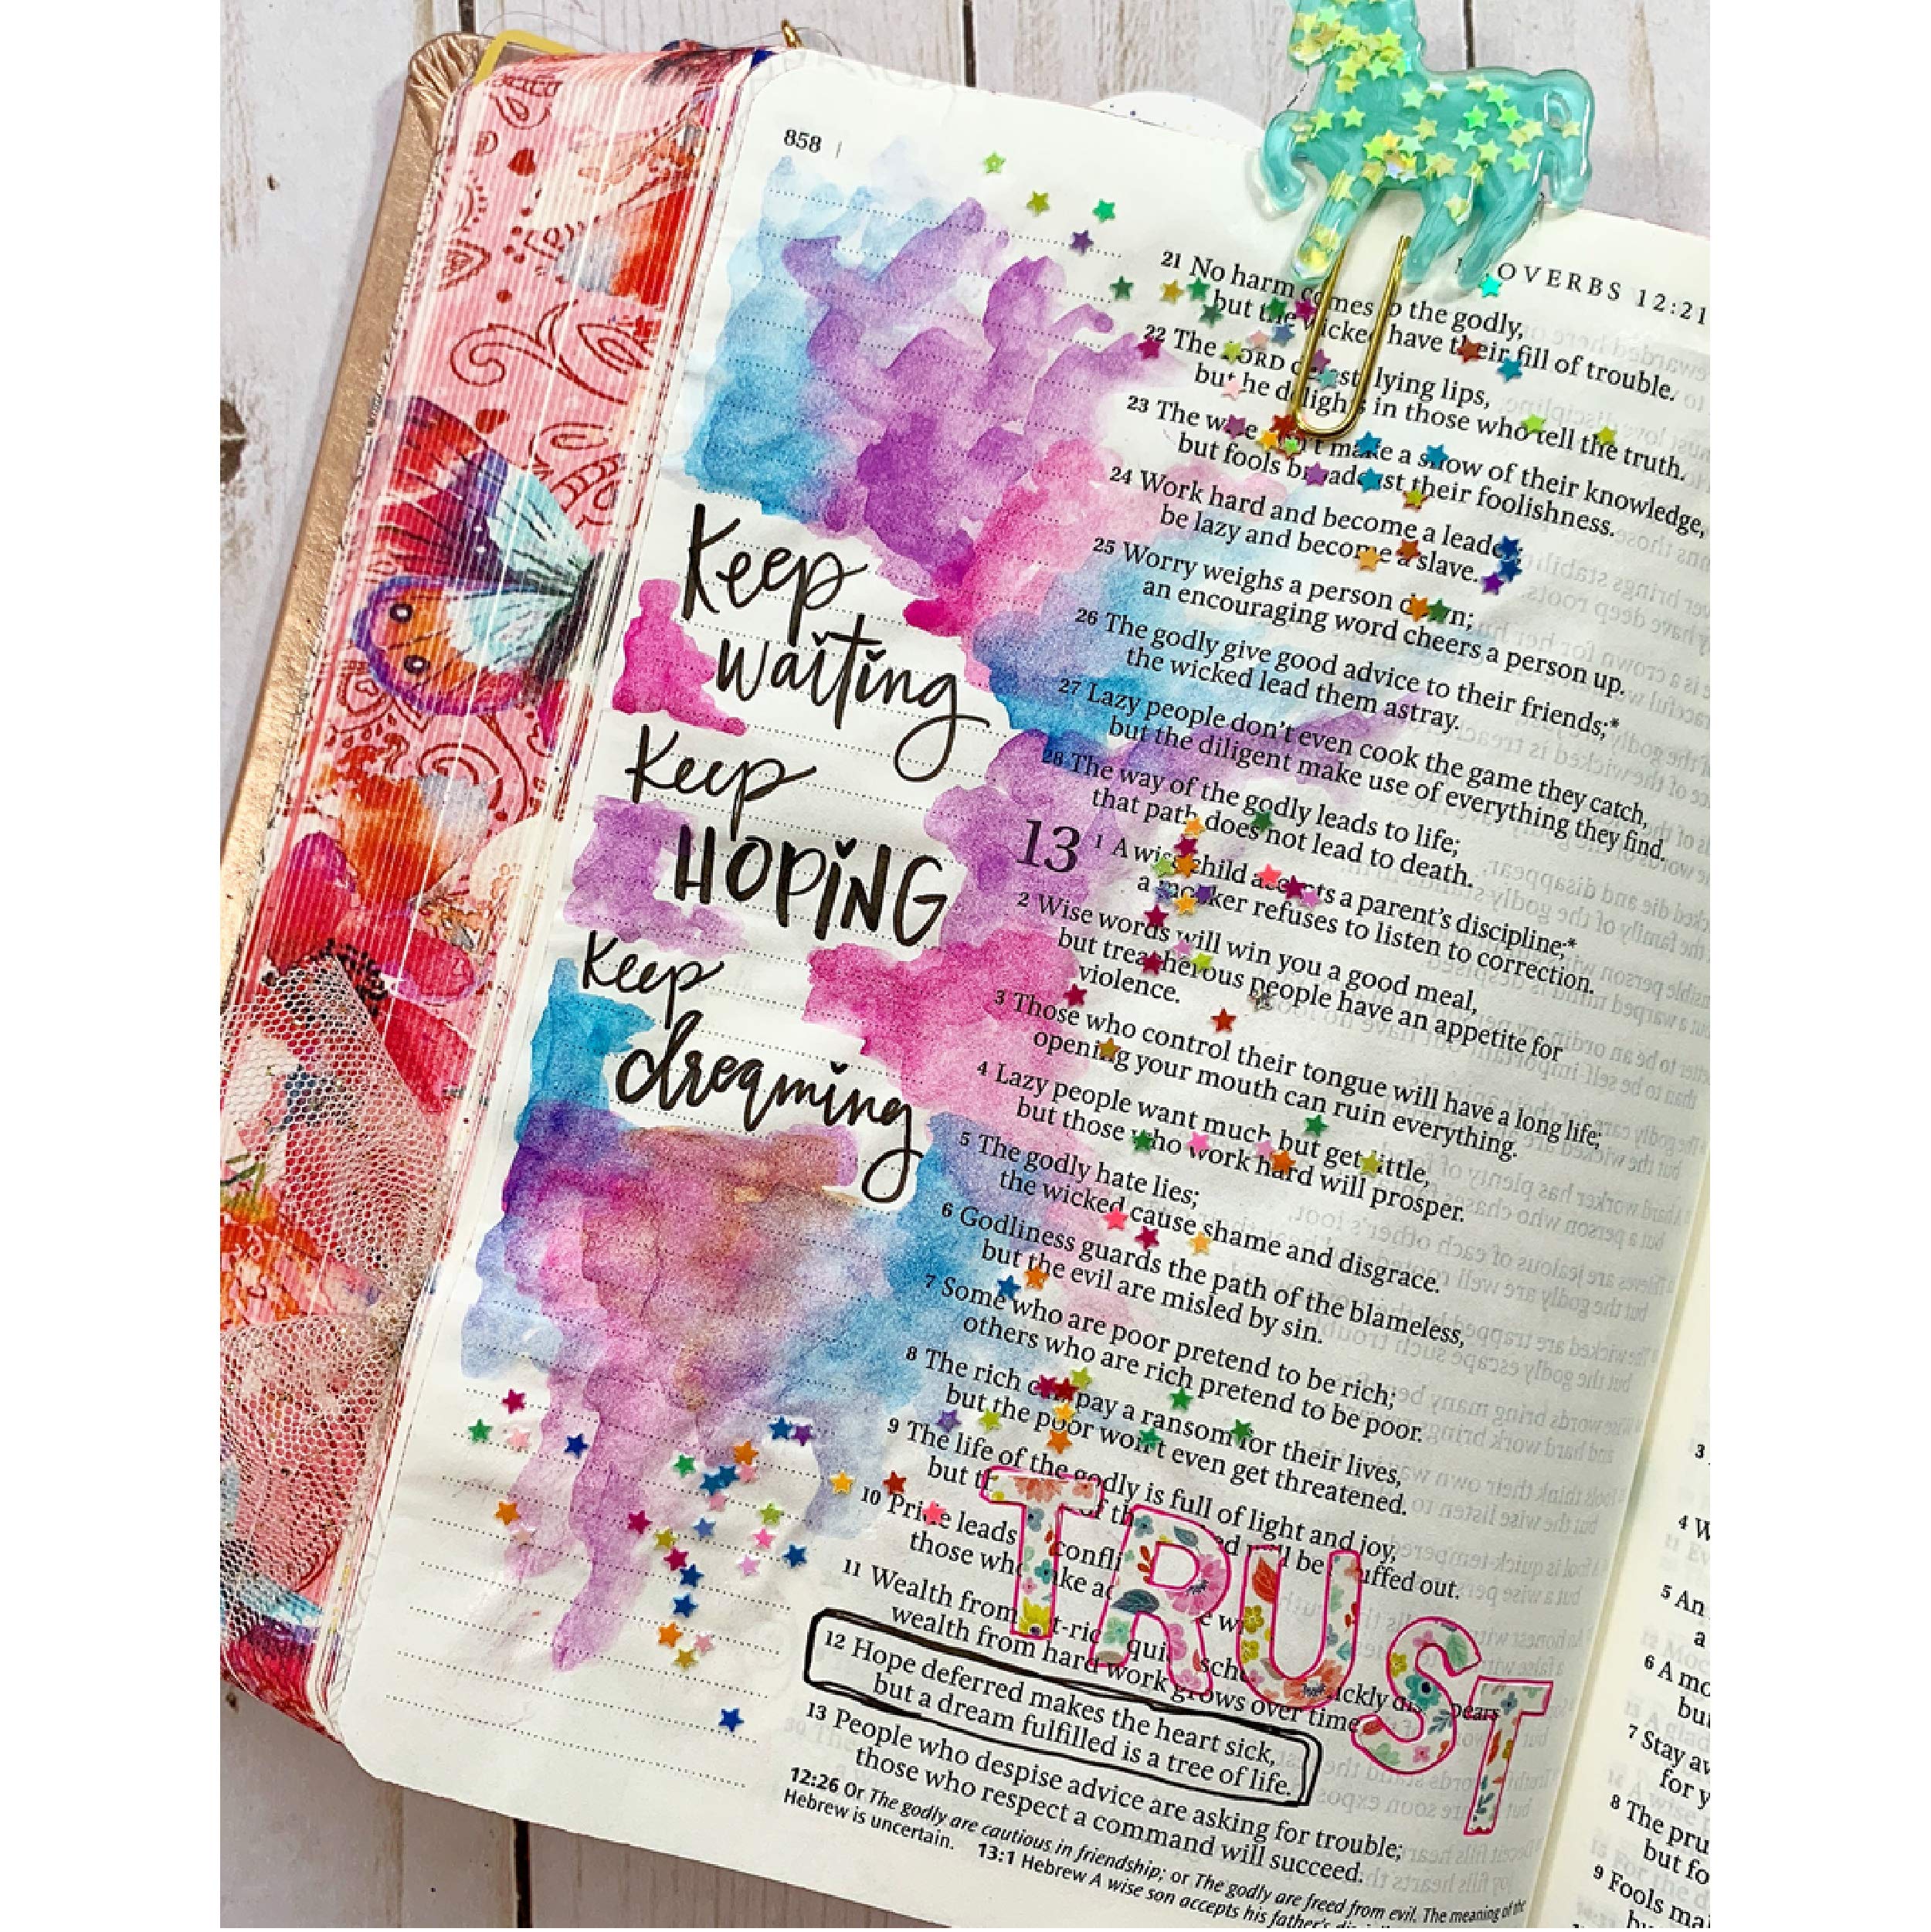 858
OVERBS 12:21
Keep
waiting
Keep
HOPING
Keep
dreaming
21 No harm comes to the godly,
but the wicked have their fill of trouble.
22 The LORD detests lying lips,
but he delights in those who tell the truth.
23 The wise don't make a show of their knowledge,
but fools broadcast their foolishness.
24 Work hard and become a leader;
be lazy and become a slave.
25 Worry weighs a person down;
an encouraging word cheers a person up.
26 The godly give good advice to their friends;*
the wicked lead them astray.
27 Lazy people don't even cook the game they catch,
but the diligent make use of everything they find.
28 The way of the godly leads to life;
that path does not lead to death.
13 1 A wise child accepts a parent's discipline;*
a mocker refuses to listen to correction.
2 Wise words will win you a good meal,
but treacherous people have an appetite for
violence.
3 Those who control their tongue will have a long life;
opening your mouth can ruin everything.
4 Lazy people want much but get little,
but those who work hard will prosper.
5 The godly hate lies;
the wicked cause shame and disgrace.
6 Godliness guards the path of the blameless,
but the evil are misled by sin.
7 Some who are poor pretend to be rich;
others who are rich pretend to be poor.
8 The rich can pay a ransom for their lives,
but the poor won't even get threatened.
9 The life of the godly is full of light and joy,
but t of th ed will be snuffed out.
10 Pride leads confli
those who take ad e wi
11 Wealth from t-ric quic sche ickly disappears
wealth from hard work grows over time
TRUST
12 Hope deferred makes the heart sick,
but a dream fulfilled is a tree of life.
13 People who despise advice are asking for trouble;
those who respect a command will succeed.
12:26 Or The godly are cautious in friendship; or The godly are freed from evil. The meaning of the
Hebrew is uncertain. 13:1 Hebrew A wise son accepts his father's
3
4 W
5 An
a
6 A mo
but
7 Stay aw
for y
8 The pru
but fo
9 Fools ma
bu